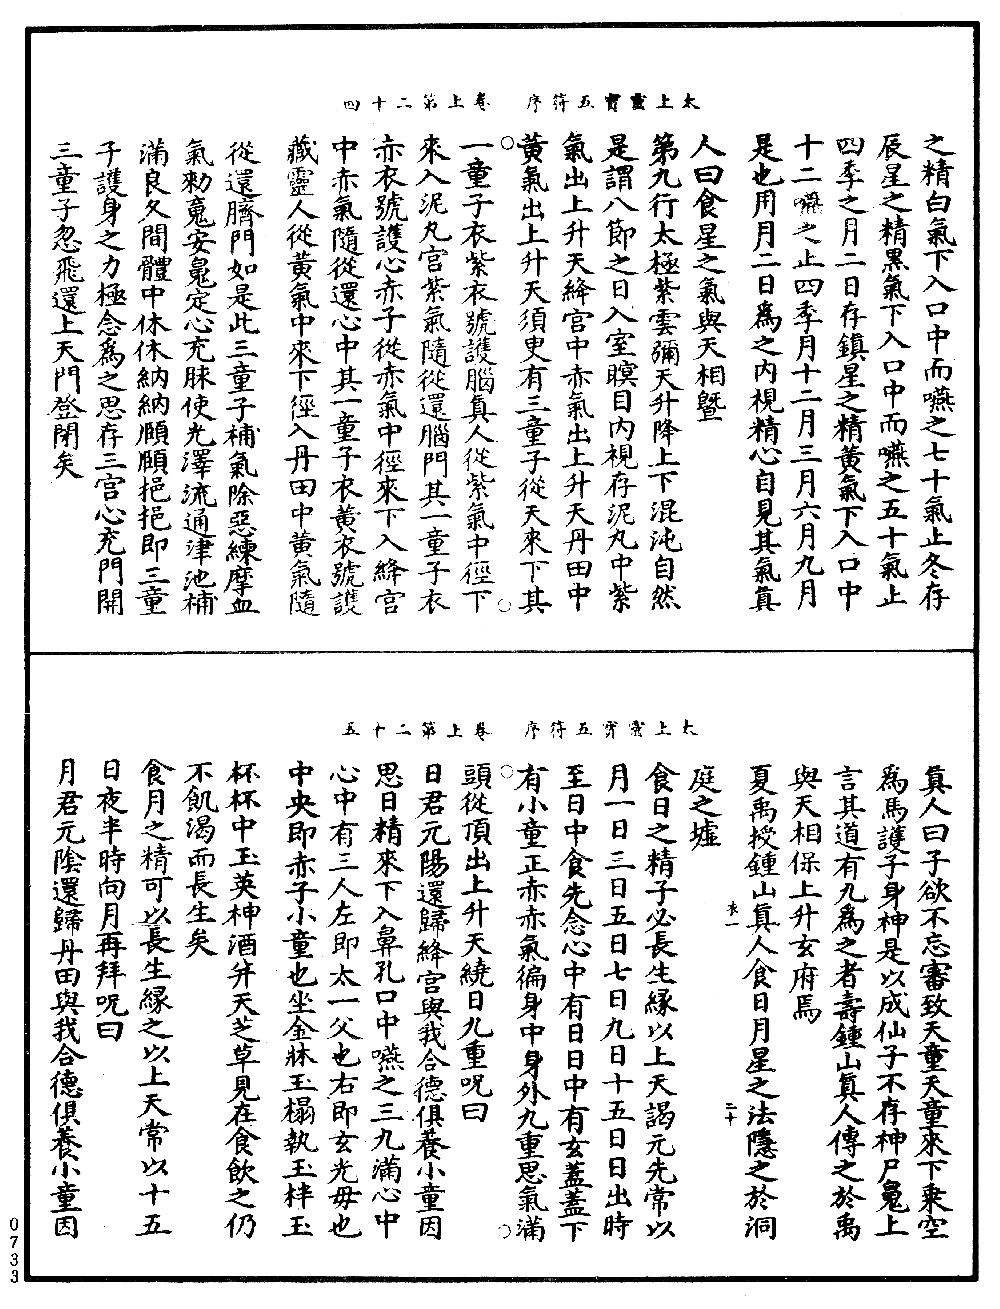 太上靈寶五符序　卷上第二十四
之精白氣下入口中而嚥之七十氣止冬存
辰星之精黑氣下入口中而嚥之五十氣止
四季之月二日存鎮星之精黃氣下入口中
十二嚥之止四季月十二月三月六月九月
是也用月二日為之內視精心自見其氣真
人曰食星之氣與天相曁
第九行太極紫雲彌天升降上下混沌自然
是謂八節之日入室瞑目內視存泥丸中紫
氣出上升天絳宮中赤氣出上升天丹田中
黃氣出上升天須臾有三童子從天來下其
一童子衣紫衣號護腦真人從紫氣中徑下
來入泥丸宮紫氣隨從還腦門其一童子衣
赤衣號護心赤子從赤氣中徑來下入絳宮
中赤氣隨從還心中其一童子衣黃衣號護
藏靈人從黃氣中來下徑入丹田中黃氣隨
從還臍門如是此三童子補氣除惡練摩血
氣勑䰟安㲋定心充脒使光澤流通津池補
滿良久間體中休休納納頤頤挹挹即三童
子護身之力極念為之思存三宮心充門開
三童子忽飛還上天門登閉矣
太上靈寶五符序　卷上第二十五
真人曰子欲不忘審致天童天童來下乘空
為馬護子身神是以成仙子不存神尸㲋上
言其道有九為之者壽鍾山真人傳之於禹
與天相保上升玄府焉
夏禹授鍾山真人食日月星之法隱之於洞
庭之墟　衣一　二十
食日之精子必長生緣以上天謁元先常以
月一日三日五日七日九日十五日日出時
至日中食先念心中有日日中有玄蓋蓋下
有小童正赤赤氣徧身中身外九重思氣滿
頭從頂出上升天繞日九重呪曰
日君元陽還歸絳宮與我合德俱養小童因
思日精來下入鼻孔口中嚥之三九滿心中
心中有三人左即太一父也右即玄光毋也
中央即赤子小童也坐金牀玉榻執玉柈玉
杯杯中玉英神酒并天芝草見在食飲之仍
不飢渴而長生矣
食月之精可以長生緣之以上天常以十五
日夜半時向月再拜呪曰
月君元陰還歸丹田與我合德俱養小童因
0733